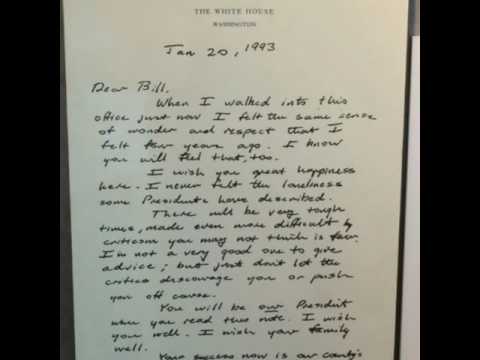 THE WHITE HOUSE
WASHINGTON
Jan 20, 1993
Dear Bill,
When I walked into this
office just now I felt the same sense
of wonder and respect that I
felt four years ago. I know
you will feel that, too.
I wish you great happiness
here. I never felt the loneliness
some Presidents have described.
There will be very tough
times, made even more difficult by
criticism you may not think is fair.
I'm not a very good one to give
advice; but just don't let the
critics discourage you or push
you off course.
You will be our President
when you read this note. I wish
you well. I wish your family
well.
Your success now is our country's